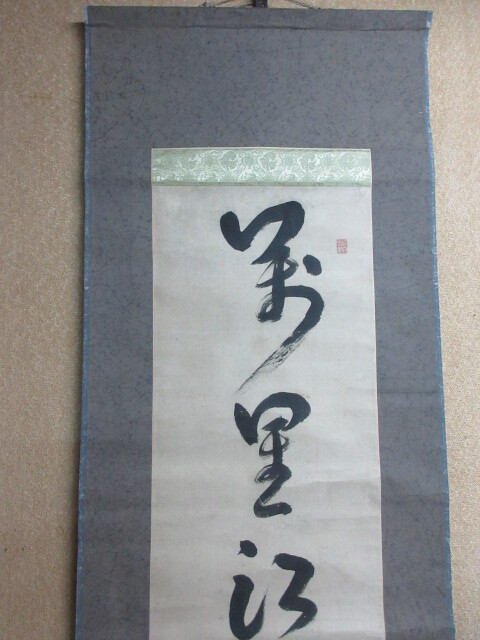 萬里江